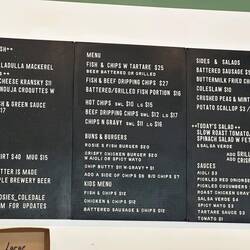 ISH**
LADULLA MACKEREL
**
CHEESE KRANSKY $11
NDUJA CROQUETTES W
SH & GREEN SAUCE
$17
IRT $40 MUG $15
TTER IS MADE
PLE BREWERY BEER
OSIES_COLEDALE
AM FOR UPDATES
MENU
FISH & CHIPS W TARTARE $25
BEER BATTERED OR GRILLED
FISH & BEEF DRIPPING CHIPS $27
BATTERED/GRILLED FISH PORTION $16
HOT CHIPS SML $10 LG $15
BEEF DRIPPING CHIPS SML $12 LG $17
CHIPS N GRAVY SML $11 LG $16
BUNS & BURGERS
ROSIE'S FISH BURGER $20
CRISPY CHICKEN BURGER $20
W AIOLI OR SPICY MAYO
CHIP BUTTY $11 W GRAVY + $1
ADD A SIDE OF CHIPS $8 B/D CHIPS $7
KIDS MENU
FISH & CHIPS $12
CHICKEN & CHIPS $12
BATTERED SAUSAGE & CHIPS $12
SIDES & SALADS
BATTERED SAUSAGE $
BUTTERMILK FRIED CHIC
COLESLAW $10
CRUSHED PEAS & MINT
POTATO SCALLOP $3 /
**TODAY'S SALAD**
SLOW ROAST TOMATO,
SPINACH SALAD W FET
& SALSA VERDE
ADD GRILL
ADD CRISP
SAUCES
AIOLI $3
PICKLED RED ONIONS
PICKLED CUCUMBERS
ROAST CHICKEN GRAVY
SALSA VERDE $3
SPICY MAYO $3
TARTARE SAUCE $3
TOMATO $1
Local